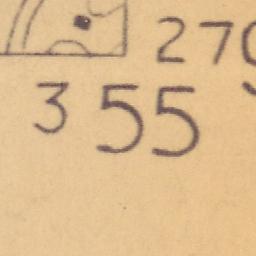 270
355